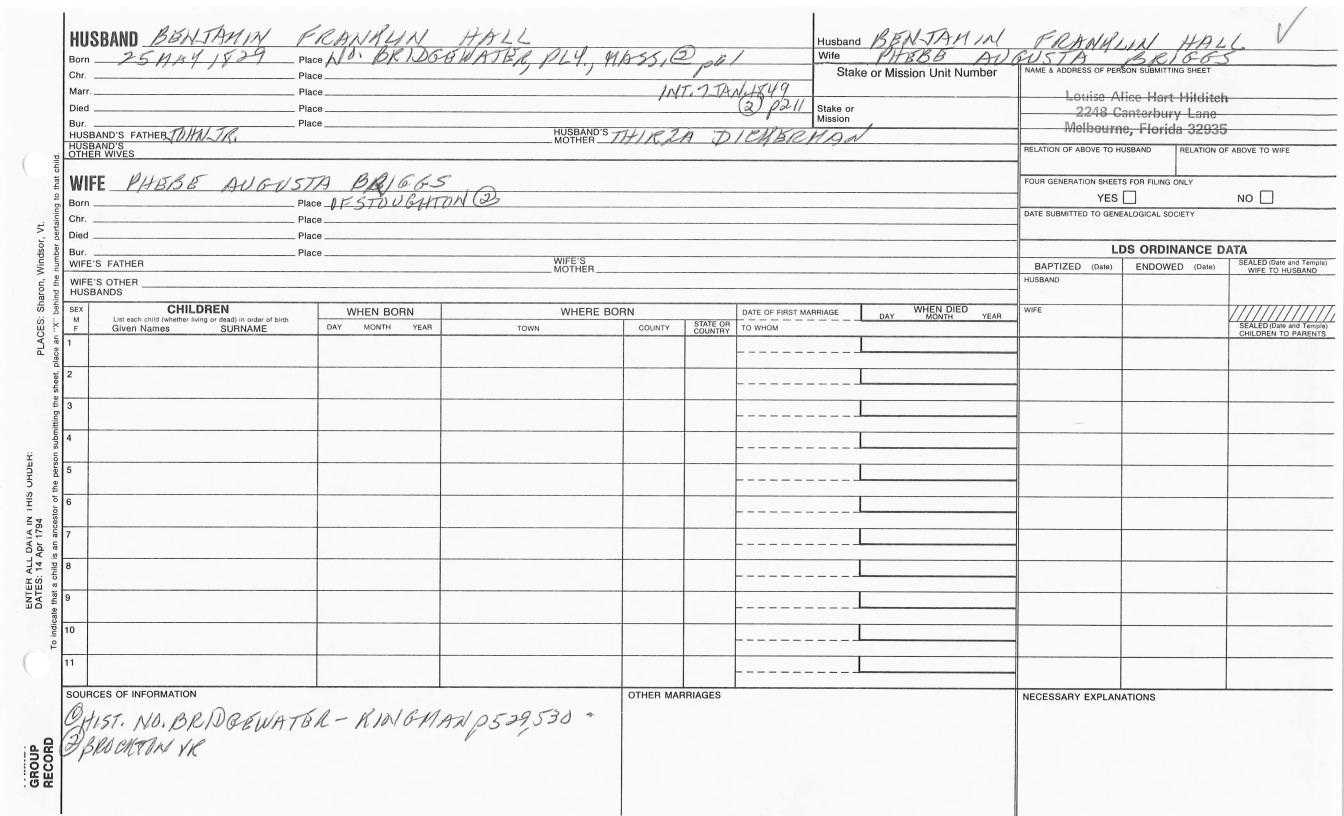 HUSBAND BENJAMIN FRANKLIN HALL
Born 25 MAY 1829 Place NO. BRIDGEWATER, PLY., MASS, ② p61
Chr. Place
Marr. Place INT. 7 JAN 1849
Died Place ② p211
Bur. Place
HUSBAND'S FATHER JOHN JR. HUSBAND'S MOTHER THIRZA DICKERMAN
HUSBAND'S OTHER WIVES
Husband BENJAMIN FRANKLIN HALL ✓
Wife PHEBE AUGUSTA BRIGGS
Stake or Mission Unit Number
Stake or Mission
NAME & ADDRESS OF PERSON SUBMITTING SHEET
Louise Alice Hart Hilditch
2248 Canterbury Lane
Melbourne, Florida 32935
RELATION OF ABOVE TO HUSBAND RELATION OF ABOVE TO WIFE
FOUR GENERATION SHEETS FOR FILING ONLY
YES NO
DATE SUBMITTED TO GENEALOGICAL SOCIETY
WIFE PHEBE AUGUSTA BRIGGS
Born Place OF STOUGHTON ②
Chr. Place
Died Place
Bur. Place
WIFE'S FATHER WIFE'S MOTHER
WIFE'S OTHER HUSBANDS
LDS ORDINANCE DATA
BAPTIZED (Date) ENDOWED (Date) SEALED (Date and Temple) WIFE TO HUSBAND
HUSBAND
WIFE
SEALED (Date and Temple) CHILDREN TO PARENTS
SEX M F
CHILDREN
List each child (whether living or dead) in order of birth
Given Names SURNAME
WHEN BORN
DAY MONTH YEAR
WHERE BORN
TOWN COUNTY STATE OR COUNTRY
DATE OF FIRST MARRIAGE
TO WHOM
WHEN DIED
DAY MONTH YEAR
1
2
3
4
5
6
7
8
9
10
11
SOURCES OF INFORMATION
① HIST. NO. BRIDGEWATER - KINGMAN p529,530
② BROCKTON VR
OTHER MARRIAGES
NECESSARY EXPLANATIONS
ENTER ALL DATA IN THIS ORDER:
DATES: 14 Apr 1794 PLACES: Sharon, Windsor, Vt.
To indicate that a child is an ancestor of the person submitting the sheet, place an "X" behind the number pertaining to that child
GROUP
RECORD